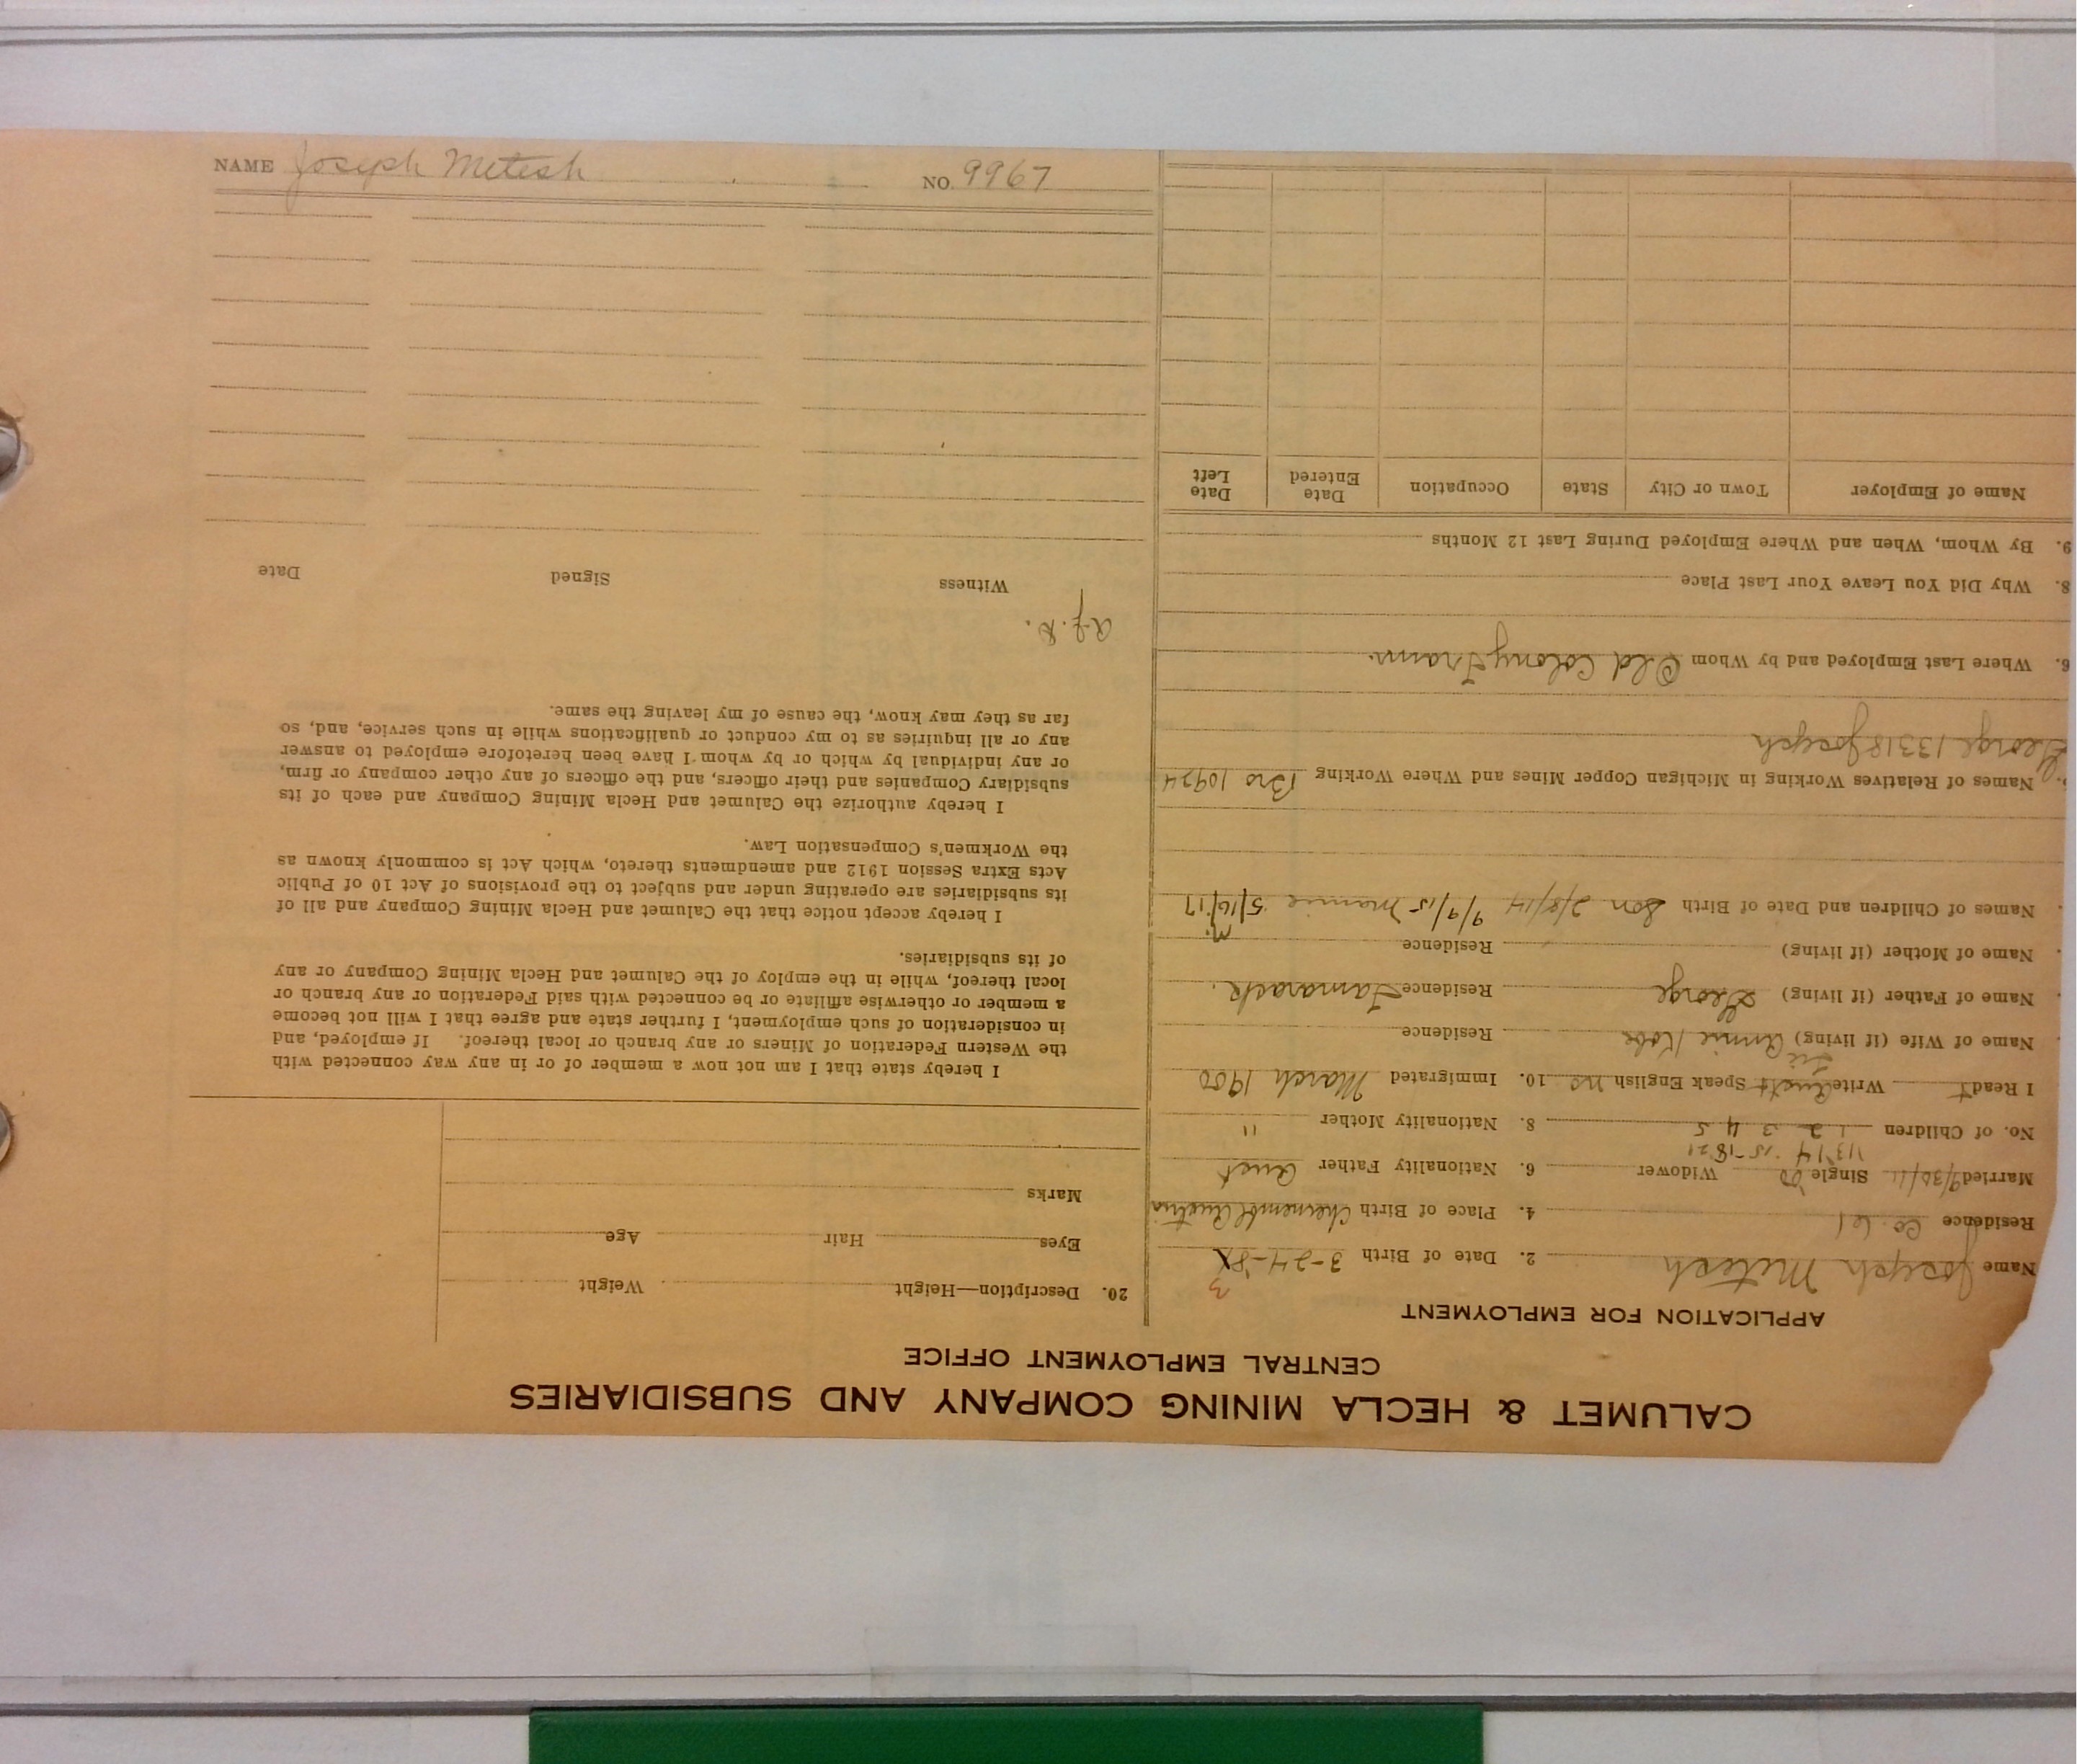 CALUMET & HECLA MINING COMPANY AND SUBSIDIARIES
CENTRAL EMPLOYMENT OFFICE
APPLICATION FOR EMPLOYMENT
Name Joseph Metesh 2. Date of Birth 3-24-8 3
Residence Co. 61 4. Place of Birth Chernembl Austria
Married 9/30/11 Single Widower 6. Nationality Father Aust
'13 '14 '15 '18 '21
No. of Children 1 2 3 4 5 8. Nationality Mother "
I Read Write Aust Speak English no 10. Immigrated March 1900
Name of Wife (if living) Annie Kobe Residence
Name of Father (if living) George Residence Tamarack.
Name of Mother (if living) Residence
Names of Children and Date of Birth Son 2/8/14 9/9/15 Mamie 5/16/17
Names of Relatives Working in Michigan Copper Mines and Where Working Bro 10924
George 13318 Joseph
6. Where Last Employed and by Whom Old Colony Tram.
8. Why Did You Leave Your Last Place
9. By Whom, When and Where Employed During Last 12 Months
Name of Employer Town or City State Occupation Date Entered Date Left
20. Description—Height Weight
Eyes Hair Age
Marks
I hereby state that I am not now a member of or in any way connected with
the Western Federation of Miners or any branch or local thereof. If employed, and
in consideration of such employment, I further state and agree that I will not become
a member or otherwise affiliate or be connected with said Federation or any branch or
local thereof, while in the employ of the Calumet and Hecla Mining Company or any
of its subsidiaries.
I hereby accept notice that the Calumet and Hecla Mining Company and all of
its subsidiaries are operating under and subject to the provisions of Act 10 of Public
Acts Extra Session 1912 and amendments thereto, which Act is commonly known as
the Workmen's Compensation Law.
I hereby authorize the Calumet and Hecla Mining Company and each of its
subsidiary Companies and their officers, and the officers of any other company or firm,
or any individual by which or by whom I have been heretofore employed to answer
any or all inquiries as to my conduct or qualifications while in such service, and, so
far as they may know, the cause of my leaving the same.
Witness Signed Date
NAME Joseph Metesh NO. 9967